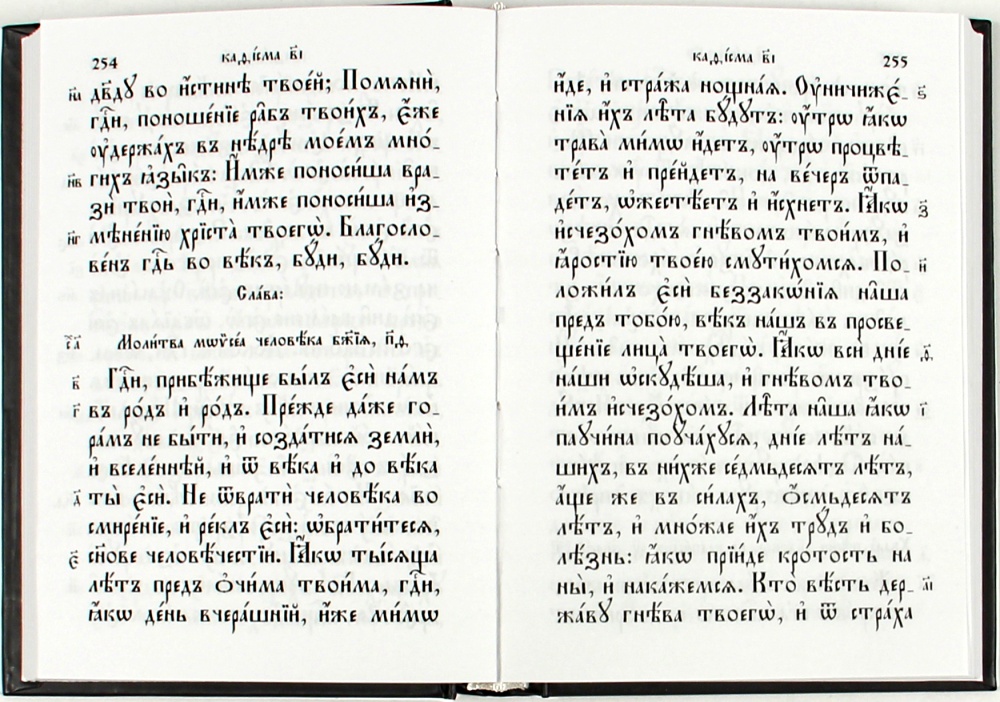 254
каѳі́сма в҃і
н҃а дв҃ду во и҆́стинѣ твое́й; Помѧнѝ,
гдⷭ҇и, поноше́нїе ра̑бъ твои́хъ, є҆́же
ᲂу҆держа́хъ въ нѣ́дрѣ мое́мъ мно́-
н҃в гихъ ꙗ҆зы̑къ: И҆́мже поноси́ша вра-
зѝ твоѝ, гдⷭ҇и, и҆́мже поноси́ша и҆з-
н҃г мѣне́нїю хрⷭ҇та̀ твоегѡ̀. Благосло-
ве́нъ гдⷭ҇ь во вѣ́къ, бꙋ́ди, бꙋ́ди.
Сла́ва:
с҃а Моли́тва мѡѷсе́а человѣ́ка бж҃їѧ, п҃ѳ.
в҃ Гдⷭ҇и, прибѣ́жище бы́лъ є҆сѝ на́мъ
г҃ въ ро́дъ и҆ ро́дъ. Пре́жде да́же го-
ра́мъ не бы́ти, и҆ созда́тисѧ землѝ,
и҆ вселе́ннѣй, и҆ ѿ вѣ́ка и҆ до вѣ́ка
д҃ ты̀ є҆сѝ. Не ѿвратѝ человѣ́ка во
смире́нїе, и҆ ре́клъ є҆сѝ: ѡ҆брати́тесѧ,
є҃ сы́нове человѣ́честїи. Ꙗ҆́кѡ ты́сѧща
лѣ́тъ пред̾ ѻ҆чи́ма твои́ма, гдⷭ҇и,
ꙗ҆́кѡ де́нь вчера́шнїй, и҆́же ми́мѡ
каѳі́сма в҃і
255
и҆́де, и҆ стра́жа нощна́ѧ. Оу҆ничиже́- ѕ҃
нїѧ и҆́хъ лѣ̑та бꙋ́дꙋтъ: ᲂу҆́трѡ ꙗ҆́кѡ
трава̀ ми́мѡ и҆́детъ, ᲂу҆́трѡ процвѣ-
те́тъ и҆ пре́йдетъ, на ве́черъ ѿпа-
де́тъ, ѡ҆жестѣ́етъ и҆ и҆́схнетъ. Ꙗ҆́кѡ з҃
и҆счезо́хомъ гнѣ́вомъ твои́мъ, и҆
ꙗ҆́ростїю твое́ю смꙋти́хомсѧ. По- и҃
ложи́лъ є҆сѝ беззакѡ́нїѧ на̑ша
пред̾ тобо́ю, вѣ́къ на́шъ въ просве-
ще́нїе лица̀ твоегѡ̀. Ꙗ҆́кѡ всѝ дні́е ѳ҃
на́ши ѡ҆скꙋдѣ́ша, и҆ гнѣ́вомъ тво-
и́мъ и҆счезо́хомъ. Лѣ̑та на̑ша ꙗ҆́кѡ і҃
паꙋчи́на поꙋча́хꙋсѧ, дні́е лѣ́тъ на́-
шихъ, въ ни́хже се́дмьдесѧтъ лѣ́тъ,
а҆́ще же въ си́лахъ, ѻ҆́смьдесѧтъ
лѣ́тъ, и҆ мно́жае и҆́хъ трꙋ́дъ и҆ бо-
лѣ́знь: ꙗ҆́кѡ прїи́де кро́тость на
ны̀, и҆ нака́жемсѧ. Кто̀ вѣ́сть дер- а҃і
жа́вꙋ гнѣ́ва твоегѡ̀, и҆ ѿ стра́ха